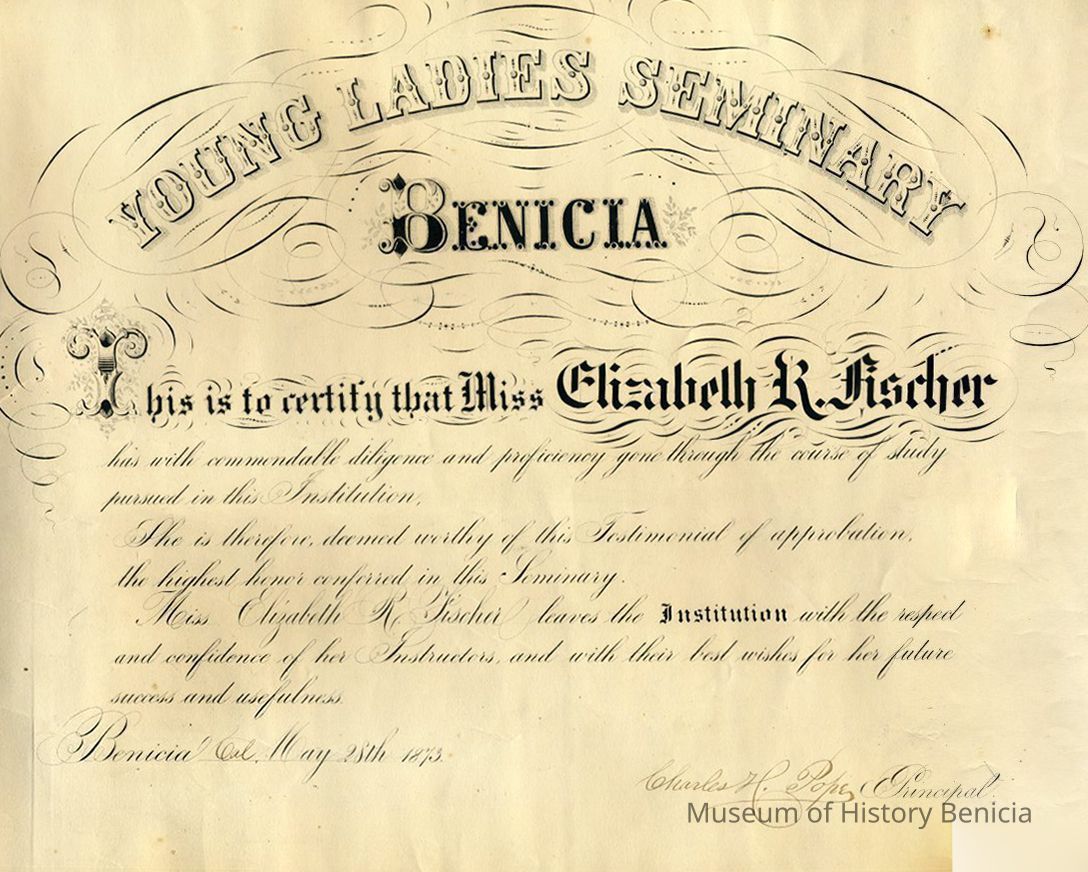 YOUNG LADIES SEMINARY
BENICIA
This is to certify that Miss Elizabeth R. Fischer
has with commendable diligence and proficiency gone through the course of study
pursued in this Institution,
She is therefore, deemed worthy of this Testimonial of approbation,
the highest honor conferred in this Seminary.
Miss Elizabeth R. Fischer leaves the Institution with the respect
and confidence of her Instructors, and with their best wishes for her future
success and usefulness.
Benicia Cal. May 28th 1873.
Charles H. Pope, Principal.
Museum of History Benicia